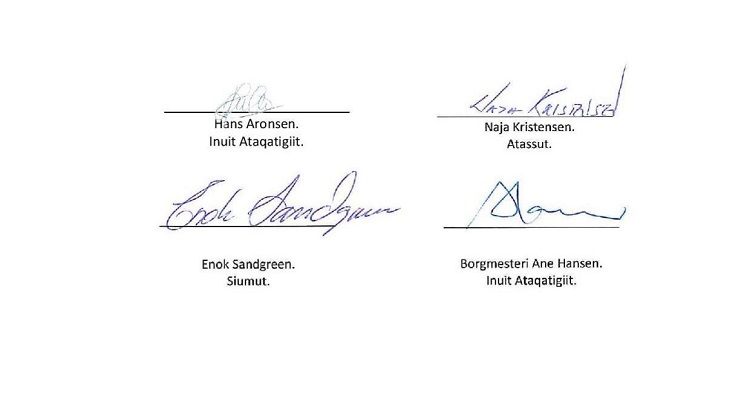 Hans Aronsen.
Inuit Ataqatigiit.
Naja Kristensen
Naja Kristensen.
Atassut.
Enok Sandgreen
Enok Sandgreen.
Siumut.
Borgmesteri Ane Hansen.
Inuit Ataqatigiit.